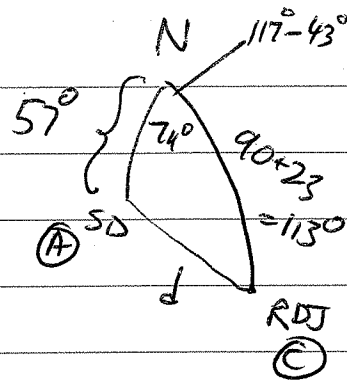 N
117°-43°
57°
74°
90+23
=113°
A SD
d
RDJ
C